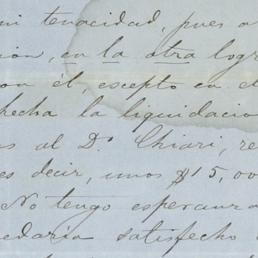 mi tenacidad, pues a
ion, en la otra logr
on él, excepto en el
hecha la liquidacio
as al Dr Chiari, re
es decir, unos $15,00
No tengo esperanza
edaria satisfecho